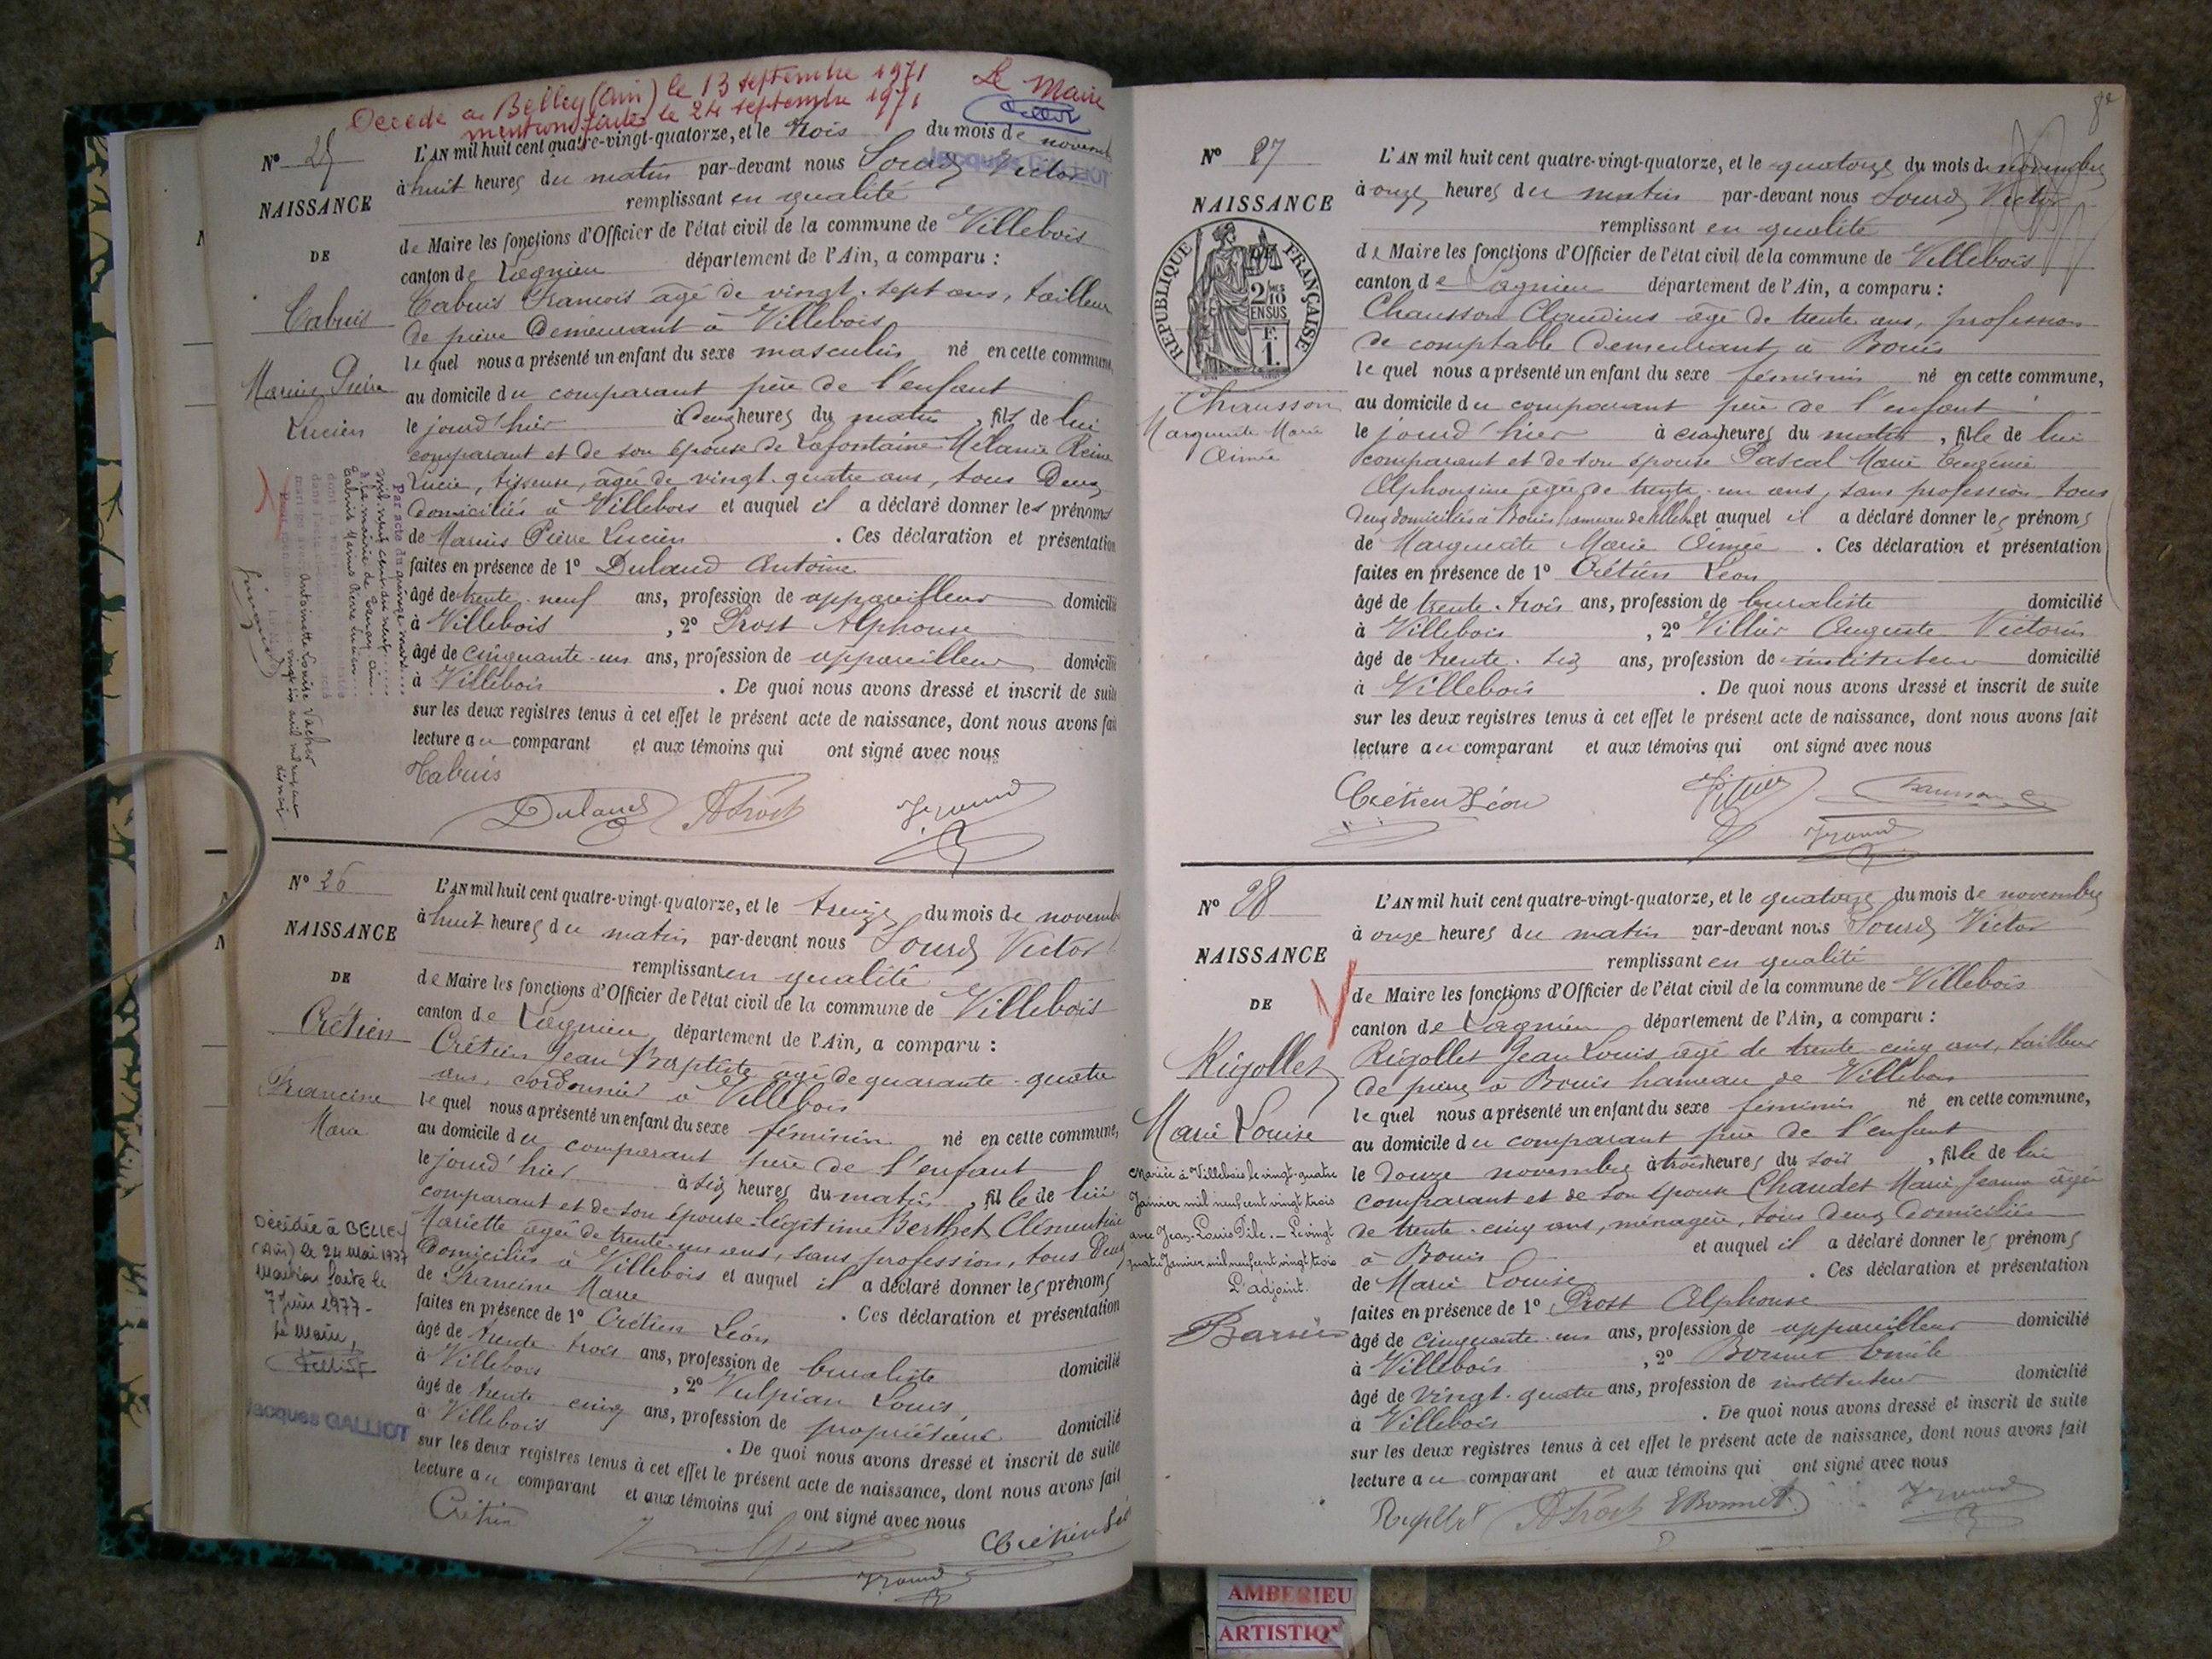 Décédé à Belley (Ain) le 13 septembre 1971
mention faite le 24 septembre 1971
Le Maire
N° 25
NAISSANCE
DE
Cabuis
Marius Pierre
Lucien
L'AN mil huit cent quatre-vingt-quatorze, et le trois du mois de novemb
à huit heures du matin par-devant nous Victor
remplissant en qualité
de Maire les fonctions d'Officier de l'état civil de la commune de Villebois
canton de Lagnieu département de l'Ain, a comparu :
Cabuis Francois âgé de vingt-sept ans, tailleur
de pierre demeurant à Villebois
lequel nous a présenté un enfant du sexe masculin né en cette commune,
au domicile du comparant père de l'enfant
le jourd'hier à deux heures du matin, fils de lui
comparant et de son épouse de Lafontaine Mélanie Reine
Lucie, tisseuse, âgée de vingt-quatre ans, tous deux
domiciliés à Villebois et auquel il a déclaré donner les prénoms
de Marius Pierre Lucien . Ces déclaration et présentation
faites en présence de 1° Duland Antoine
âgé de trente-neuf ans, profession de appareilleur domicilié
à Villebois , 2° Prost Alphonse
âgé de cinquante-un ans, profession de appareilleur domicilié
à Villebois . De quoi nous avons dressé et inscrit de suite
sur les deux registres tenus à cet effet le présent acte de naissance, dont nous avons fait
lecture au comparant et aux témoins qui ont signé avec nous
Cabuis
Duland AProst
N° 26
NAISSANCE
DE
Crétien
Francine
Marie
Décédée à BELLEY
(Ain) le 24 Mai 1977
Mention faite le
7 Juin 1977-
Le Maire,
Jacques GALLIOT
L'AN mil huit cent quatre-vingt-quatorze, et le treize du mois de novemb
à huit heures du matin par-devant nous Sourd Victor
remplissant en qualité
de Maire les fonctions d'Officier de l'état civil de la commune de Villebois
canton de Lagnieu département de l'Ain, a comparu :
Crétien Jean Baptiste âgé de quarante-quatre
ans, cordonnier à Villebois
lequel nous a présenté un enfant du sexe féminin né en cette commune,
au domicile du comparant père de l'enfant
le jourd'hier à six heures du matin, fille de lui
comparant et de son épouse légitime Berthet Clémentine
Mariette âgée de trente-un ans, sans profession, tous deux
domiciliés à Villebois et auquel il a déclaré donner les prénoms
de Francine Marie . Ces déclaration et présentation
faites en présence de 1° Crétien Léon
âgé de trente-trois ans, profession de buraliste domicilié
à Villebois , 2° Vulpian Louis,
âgé de trente-cinq ans, profession de propriétaire domicilié
à Villebois . De quoi nous avons dressé et inscrit de suite
sur les deux registres tenus à cet effet le présent acte de naissance, dont nous avons fait
lecture au comparant et aux témoins qui ont signé avec nous
Crétien
N° 27
NAISSANCE
DE
RÉPUBLIQUE FRANÇAISE
2/10
EN SUS
F.
1.
Chausson
Marguerite Marie
Aimée
L'AN mil huit cent quatre-vingt-quatorze, et le quatorze du mois de novembre
à onze heures du matin par-devant nous Sourd Victor
remplissant en qualité
de Maire les fonctions d'Officier de l'état civil de la commune de Villebois
canton de Lagnieu département de l'Ain, a comparu :
Chausson Claudius âgé de trente ans, profession
de comptable demeurant à Bouis
lequel nous a présenté un enfant du sexe féminin né en cette commune,
au domicile du comparant père de l'enfant
le jourd'hier à cinq heures du matin, fille de lui
comparant et de son épouse Pascal Marie Eugénie
Alphonsine âgée de trente-un ans, sans profession tous
deux domiciliés à Bouis hameau de Villebois et auquel il a déclaré donner les prénoms
de Marguerite Marie Aimée . Ces déclaration et présentation
faites en présence de 1° Crétien Léon
âgé de trente-trois ans, profession de buraliste domicilié
à Villebois , 2° Auguste Victorin
âgé de trente-six ans, profession de instituteur domicilié
à Villebois . De quoi nous avons dressé et inscrit de suite
sur les deux registres tenus à cet effet le présent acte de naissance, dont nous avons fait
lecture au comparant et aux témoins qui ont signé avec nous
Crétien Léon
N° 28
NAISSANCE
DE
Rigollet
Marie Louise
Mariée à Villebois le vingt-quatre
Janvier mil neuf cent vingt trois
avec Jean-Louis Pile. _ Le vingt
quatre Janvier mil neuf cent vingt trois
L'adjoint.
L'AN mil huit cent quatre-vingt-quatorze, et le quatorze du mois de novembre
à onze heures du matin par-devant nous Sourd Victor
remplissant en qualité
de Maire les fonctions d'Officier de l'état civil de la commune de Villebois
canton de Lagnieu département de l'Ain, a comparu :
Rigollet Jean Louis âgé de trente-cinq ans, tailleur
de pierre à Bouis hameau de Villebois
lequel nous a présenté un enfant du sexe féminin né en cette commune,
au domicile du comparant père de l'enfant
le douze novembre à trois heures du soir, fille de lui
comparant et de son épouse Chaudet Marie Jeanne âgée
de trente-cinq ans, ménagère, tous deux domiciliés
à Bouis et auquel il a déclaré donner les prénoms
de Marie Louise . Ces déclaration et présentation
faites en présence de 1° Prost Alphonse
âgé de cinquante-un ans, profession de appareilleur domicilié
à Villebois , 2° Bonnet Emile
âgé de vingt-quatre ans, profession de instituteur domicilié
à Villebois . De quoi nous avons dressé et inscrit de suite
sur les deux registres tenus à cet effet le présent acte de naissance, dont nous avons fait
lecture au comparant et aux témoins qui ont signé avec nous
Rigollet AProst EBonnet
AMBERIEU
ARTISTIQ